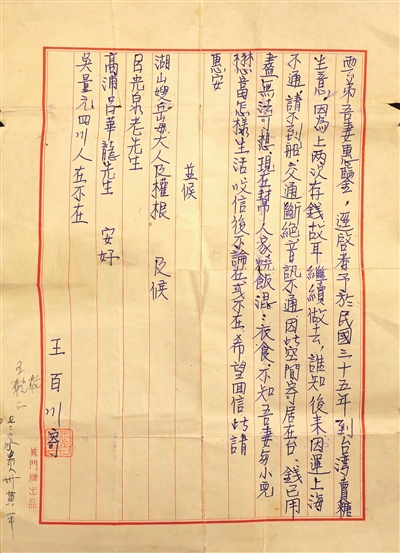 雲弟吾妻惠鑒,逕啓者予於民國三十五年到台湾賣糖
生意。因為上两次存錢故耳繼續做去,誰知後来因運上海
不通請不到船,交通斷絕音訊不通因此空閒寄居在台、錢已用
盡無法可想、现在幫人家燒飯混衣食、不知吾妻与小兒
懋當怎樣生活收信後不論在或不在、希望回信此請
惠安
並候
湖山嫂岳母大人及權根 及候
呂光泉老先生
高浦呂華龍先生 安好
吳量元四川人在不在
王百川寄
城門牌出品